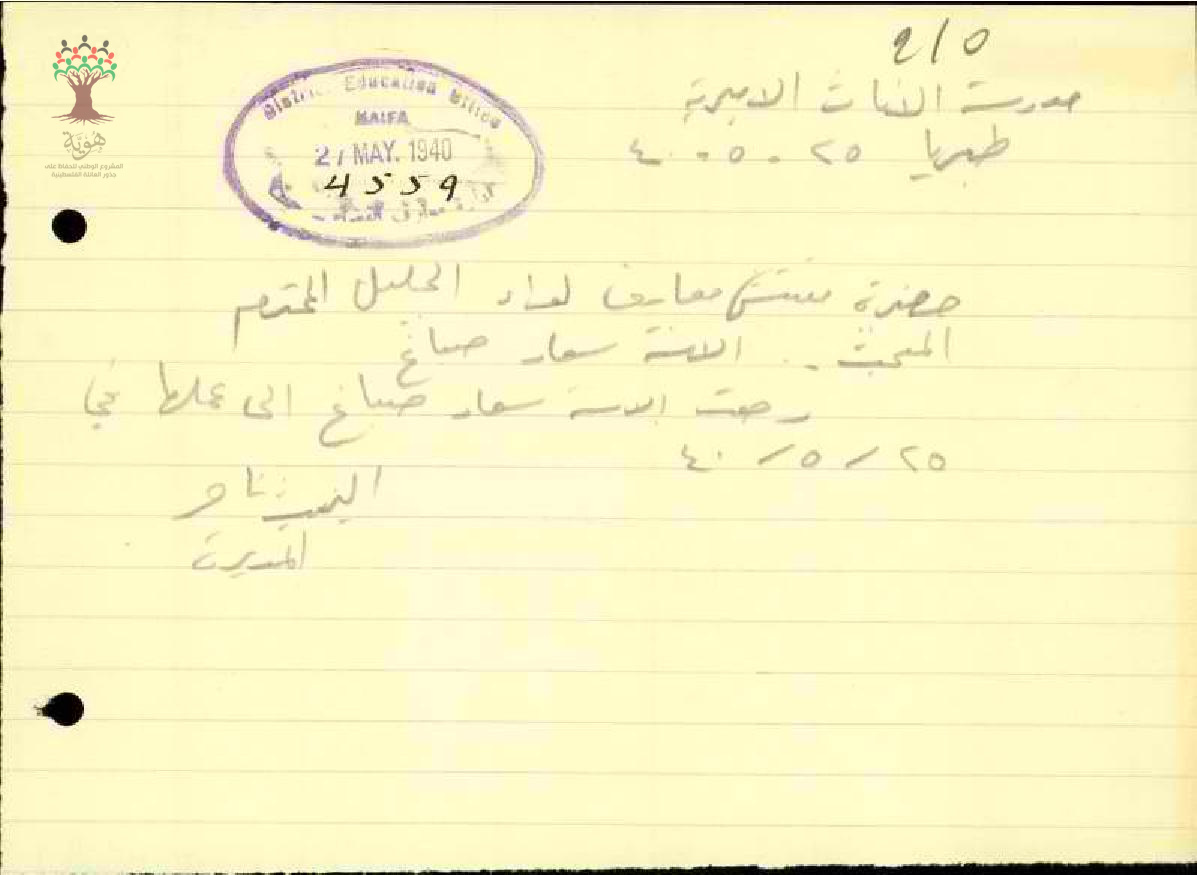 2/0
مدرسة البنات الاميرية
طبريا ٢٥ - ٥ - ٤٠
District Education Office
HAIFA
27 MAY. 1940
4559
هُويَّة
المشروع الوطني للحفاظ على
جذور العائلة الفلسطينية
حضرة مفتش معارف لواء الجليل المحترم
المبحث - الانسة سعاد صباغ
رجعت الانسة سعاد صباغ الى عملها في
٢٥ / ٥ / ٤٠
المديرة